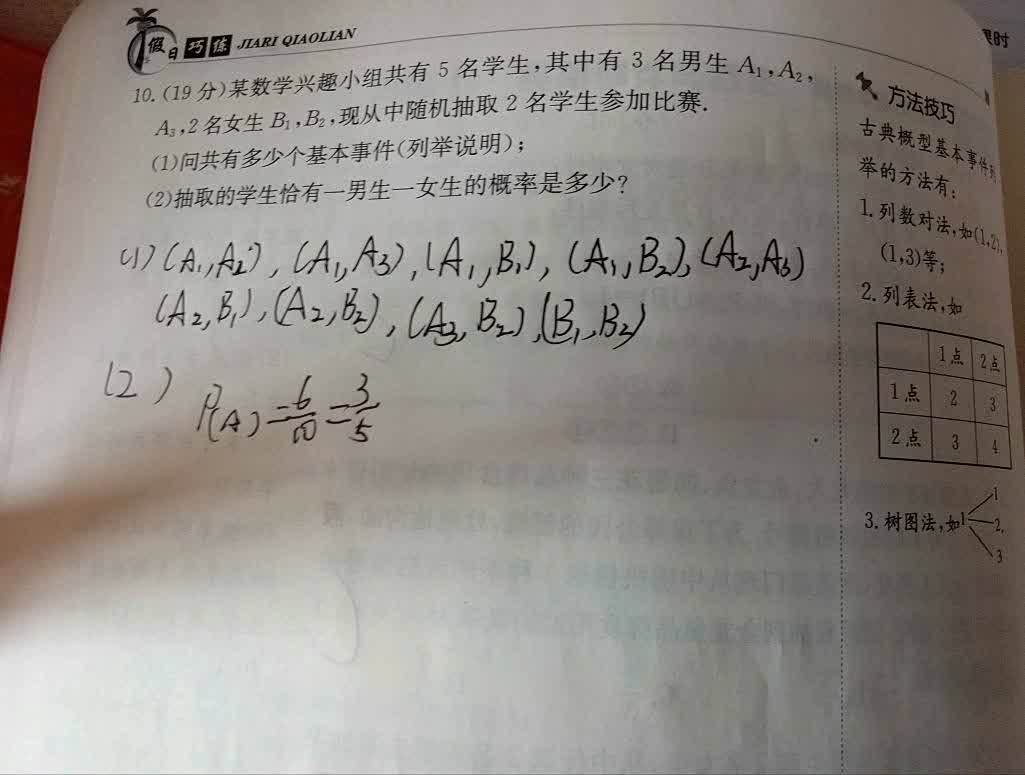 假日巧练 JIARI QIAOLIAN
10.(19分)某数学兴趣小组共有5名学生,其中有3名男生A₁,A₂,
A₃,2名女生B₁,B₂,现从中随机抽取2名学生参加比赛.
(1)问共有多少个基本事件(列举说明);
(2)抽取的学生恰有一男生一女生的概率是多少?
(1)(A₁,A₂),(A₁,A₃),(A₁,B₁),(A₁,B₂),(A₂,A₃)
(A₂,B₁),(A₂,B₂),(A₃,B₂),(B₁,B₂)
(2) P(A)=6/10=3/5
课时
方法技巧
古典概型基本事件列
举的方法有:
1.列数对法,如(1,2),
(1,3)等;
2.列表法,如
1点 2点
1点 2 3
2点 3 4
3.树图法,如1
1
2,
3